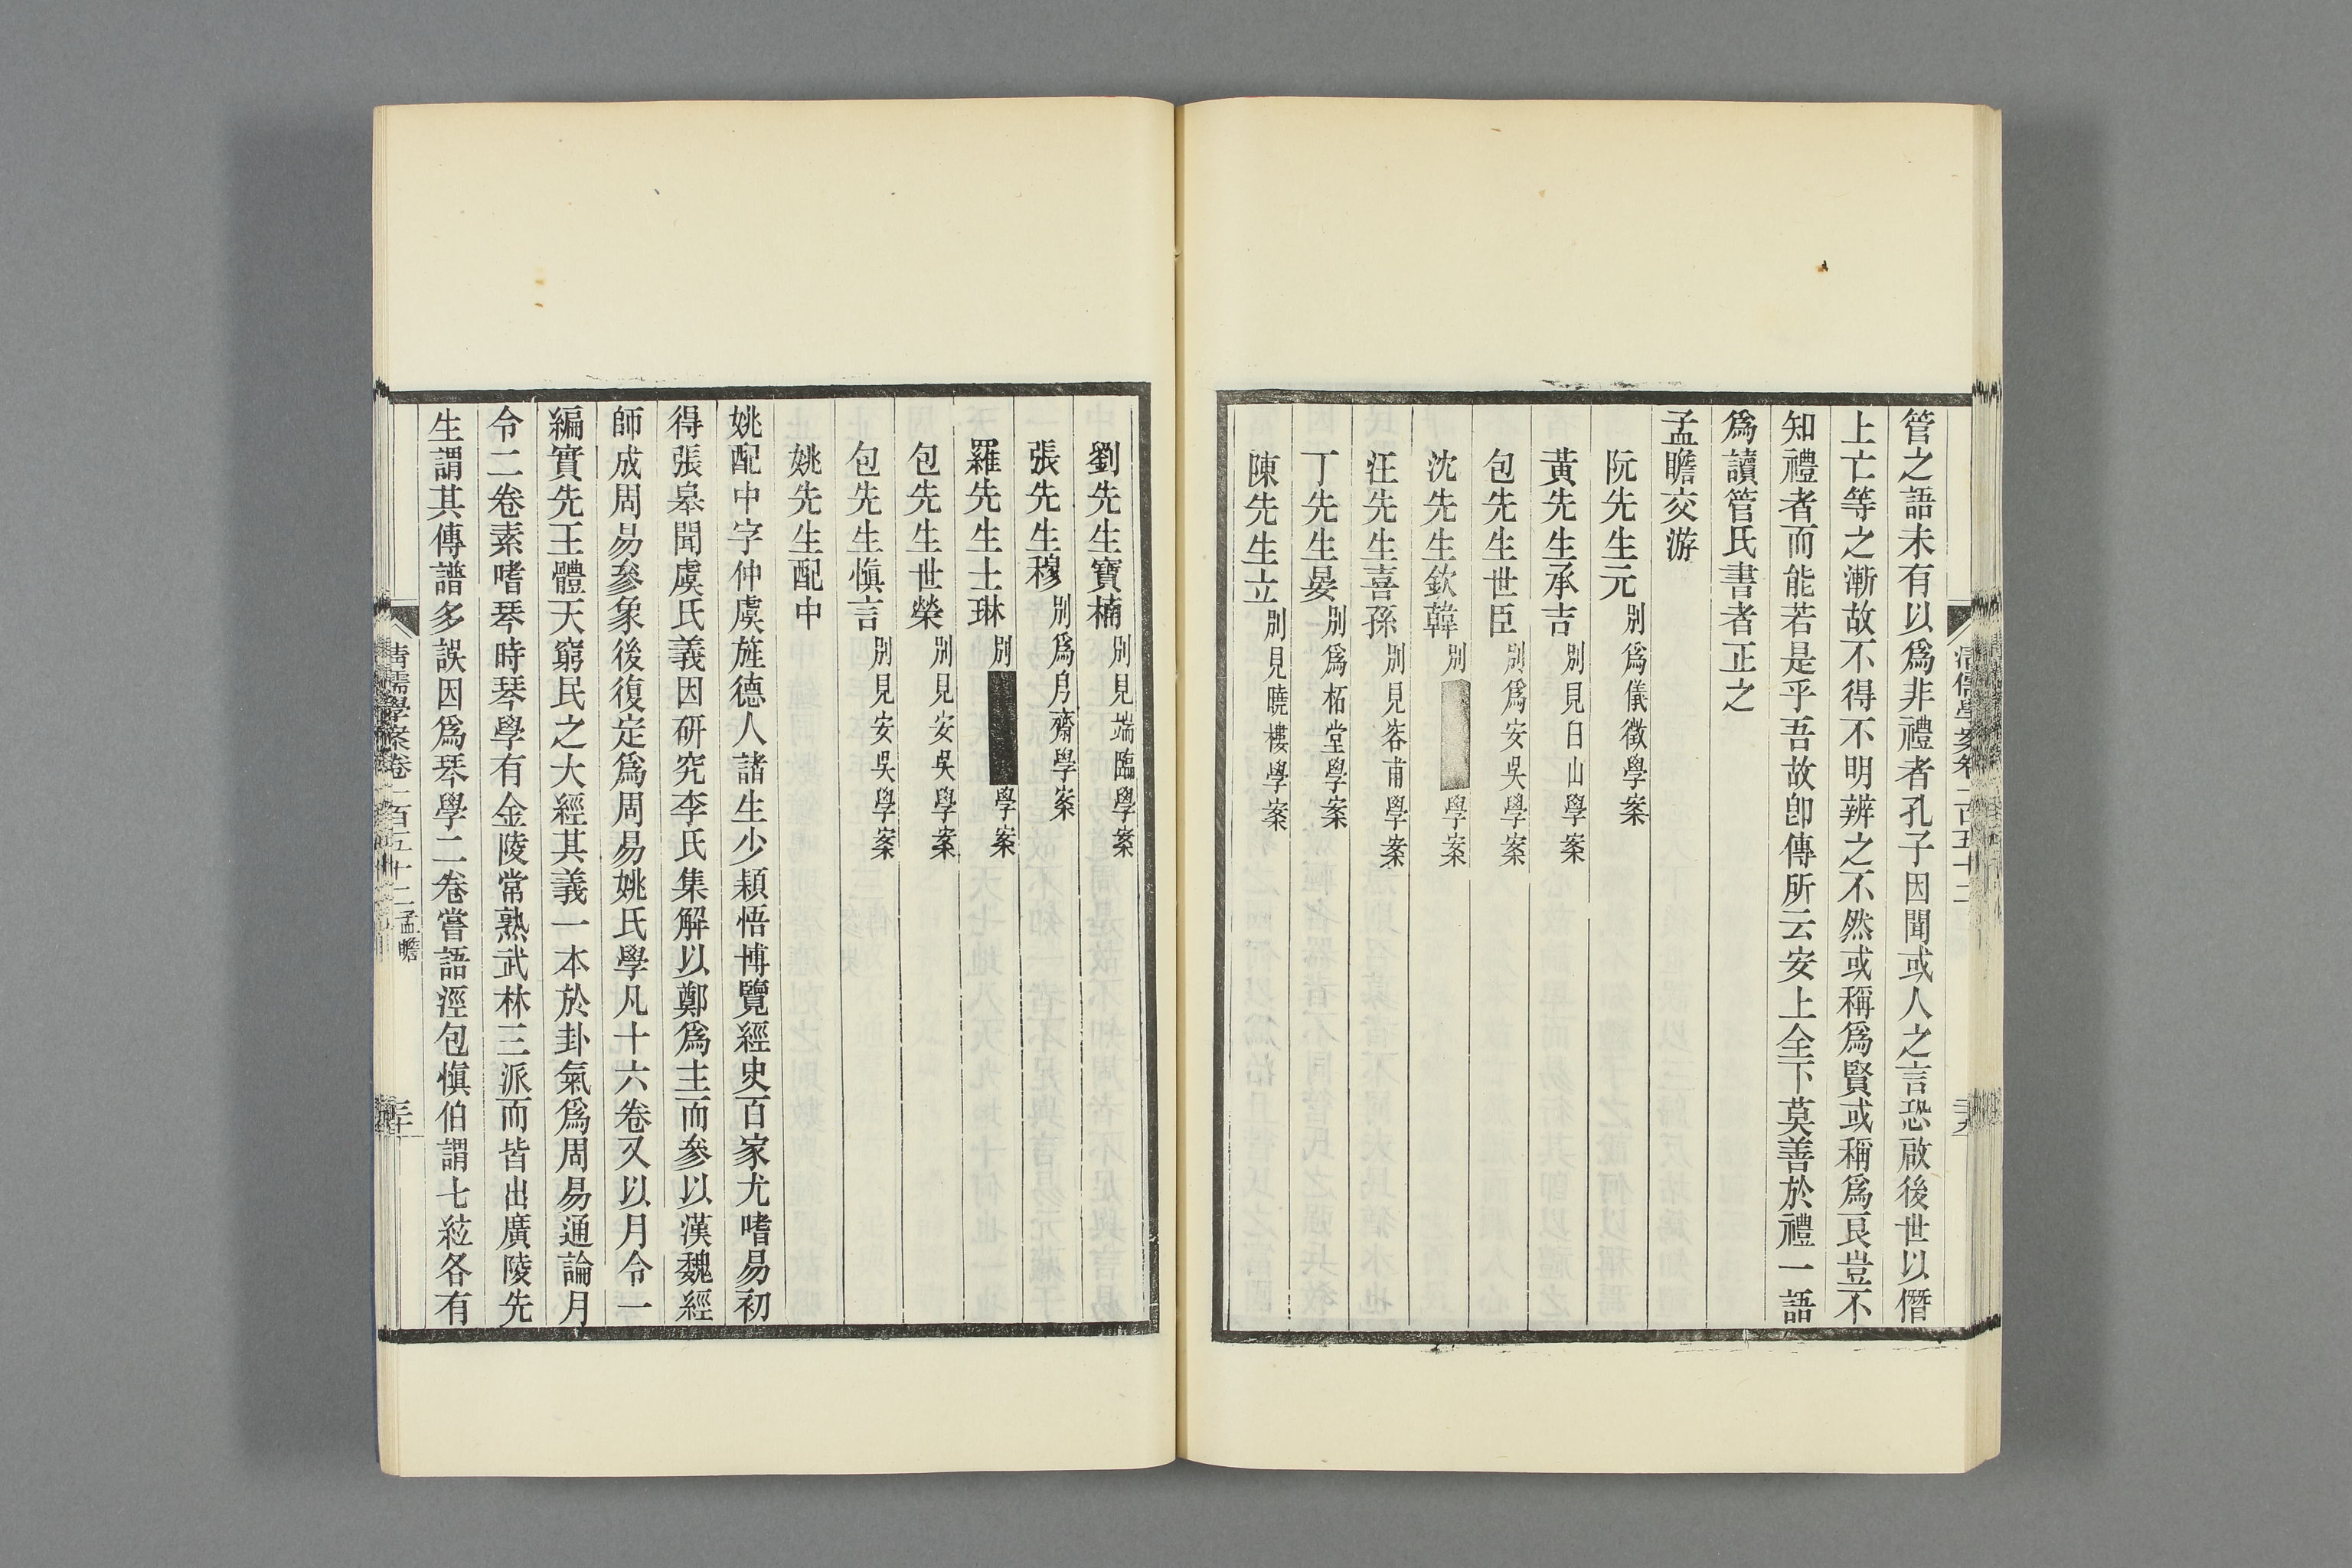 管之語未有以爲非禮者孔子因聞或人之言恐啟後世以僭
上亡等之漸故不得不明辨之不然或稱爲賢或稱爲良豈不
知禮者而能若是乎吾故卽傳所云安上全下莫善於禮一語
爲讀管氏書者正之
孟瞻交游
阮先生元別爲儀徵學案
黃先生承吉別見白山學案
包先生世臣別爲安吳學案
沈先生欽韓別學案
汪先生喜孫別見容甫學案
丁先生晏別爲柘堂學案
陳先生立別見曉樓學案
劉先生寶楠別見端臨學案
張先生穆別爲㐆齋學案
羅先生士琳別學案
包先生世榮別見安吳學案
包先生愼言別見安吳學案
姚先生配中
姚配中字仲虞旌德人諸生少穎悟博覽經史百家尤嗜易初
得張皋聞虞氏義因研究李氏集解以鄭爲主而參以漢魏經
師成周易參象後復定爲周易姚氏學凡十六卷又以月令一
編實先王體天窮民之大經其義一本於卦氣爲周易通論月
令二卷素嗜琴時琴學有金陵常熟武林三派而皆出廣陵先
生謂其傳譜多誤因爲琴學二卷嘗語涇包愼伯謂七絃各有
清儒學案卷一百五十二 孟瞻
三十